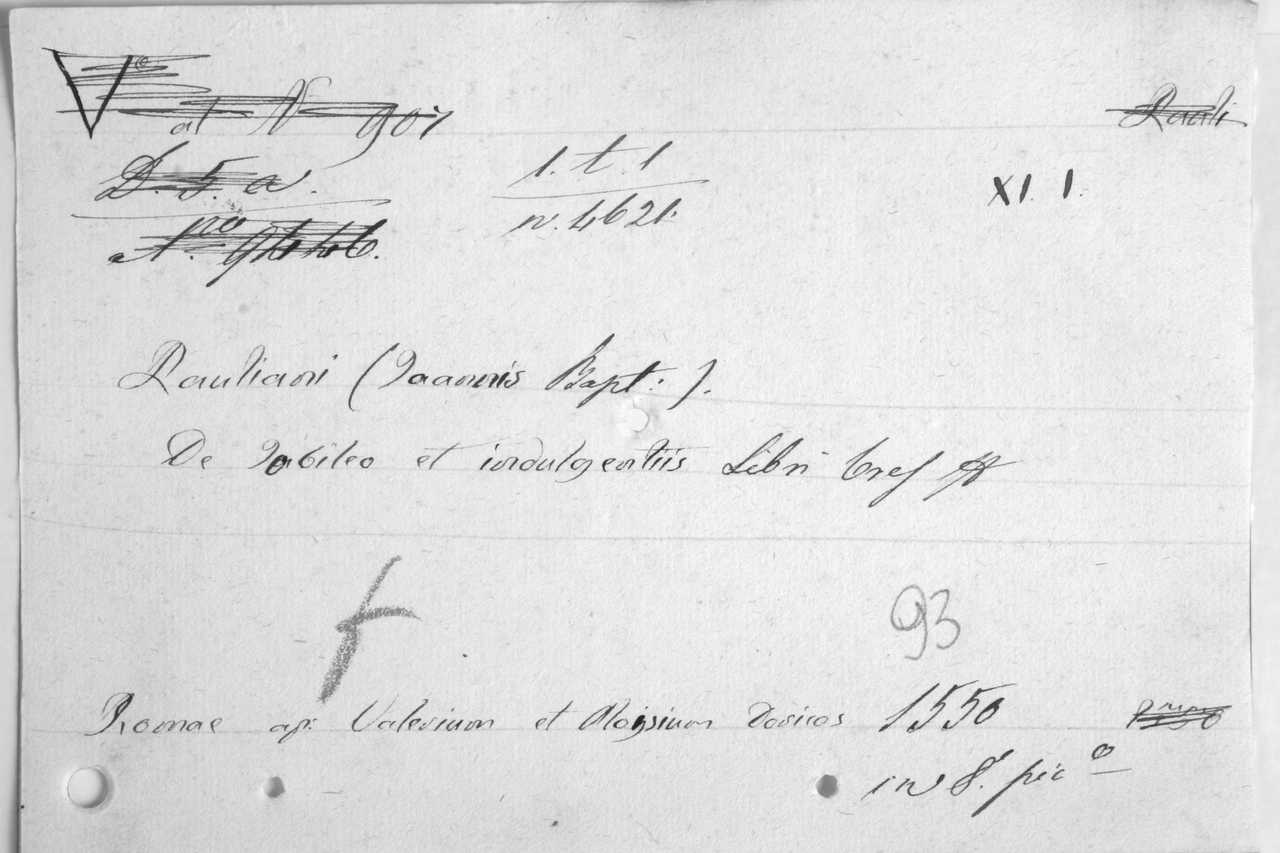 V.e at N 907
Pauli
D. 5. a.
1. t. 1
XI. 1.
n. 4621.
Pauliani (Joannis Bapt: ).
De Jubileo et indulgentiis Libri tres
93
Romae ap: Valerium et Aloysium Doricos 1550
in 8.º pic.o